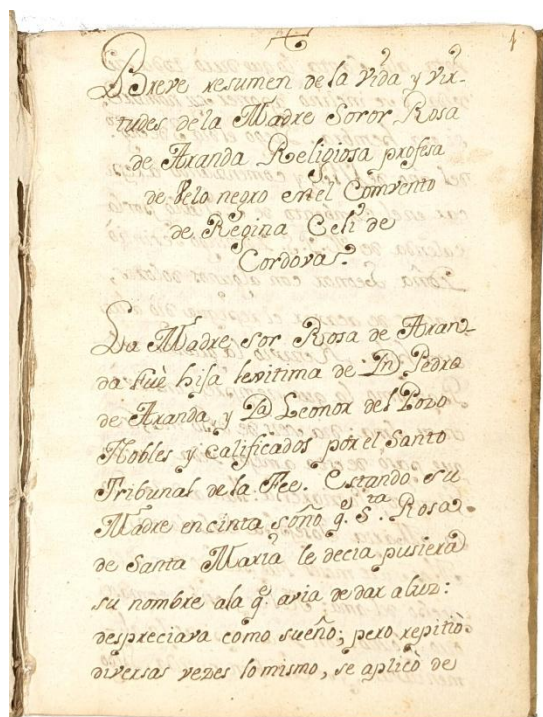 1
Breve resumen de la Vida y vir-
tudes de la Madre Soror Rosa
de Aranda Religiosa profesa
de Velo negro en el Comvento
de Regina Celi de
Cordova.
La Madre sor Rosa de Aran-
da fuè hija levitima de Dn Pedro
de Aranda, y Da Leonor del Pozo
Nobles y calificados por el Santo
Tribunal de la Fee. Estando su
Madre en cinta soño q. Sta. Rosa
de Santa Maria le decia pusiera
su nombre ala q. avia de dar a luz:
despreciava como sueño; pero repitio
diversas vezes lo mismo, se aplicò de